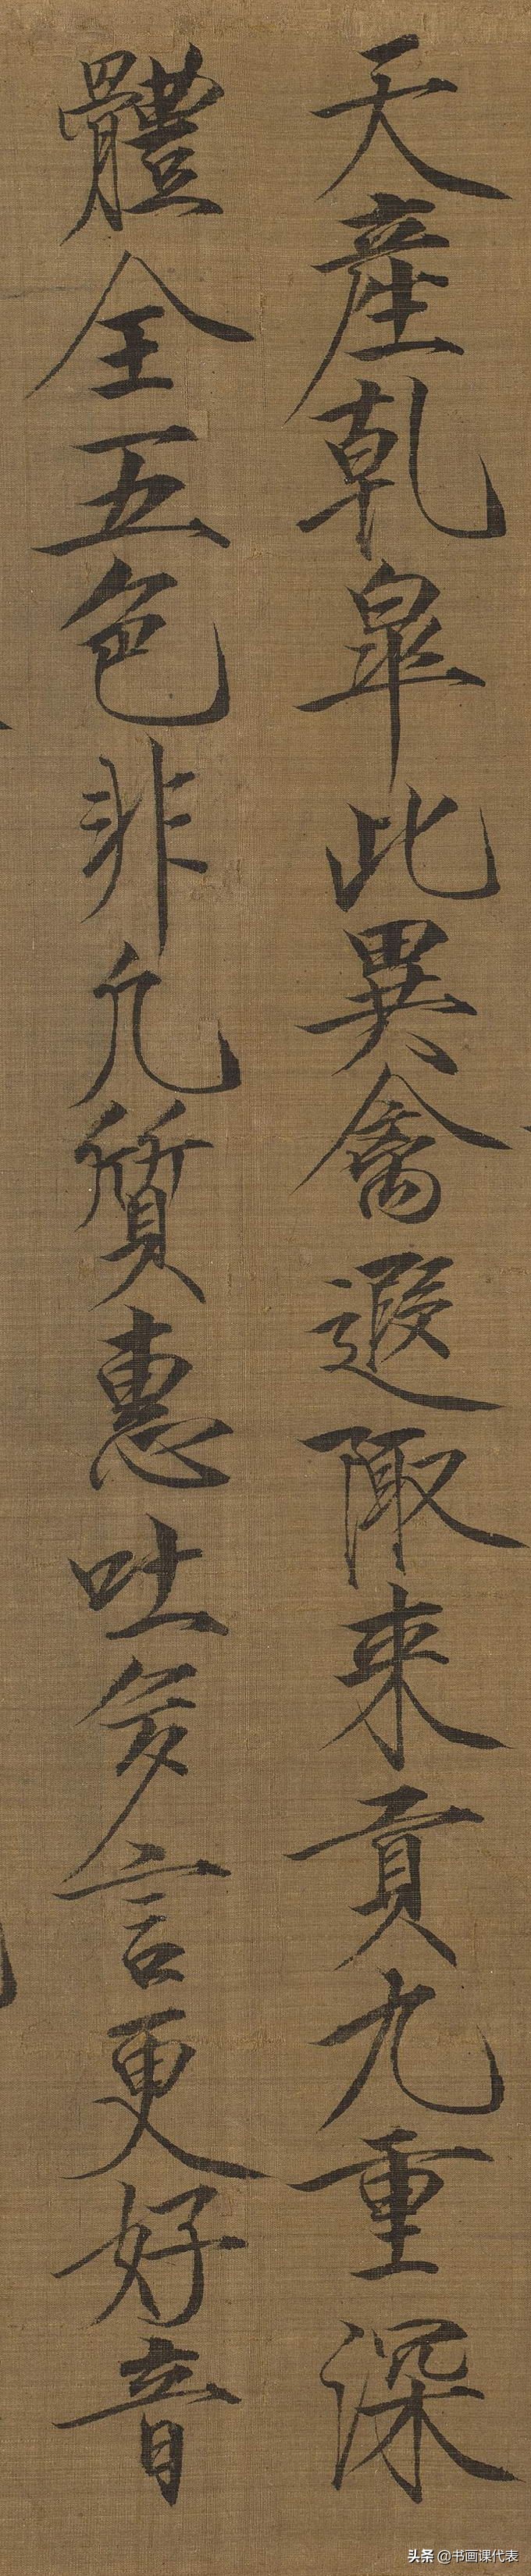 天產乾皐此異禽遐陬来貢九重深
體全五色非凡質惠吐多言更好音
头条 @书画课代表